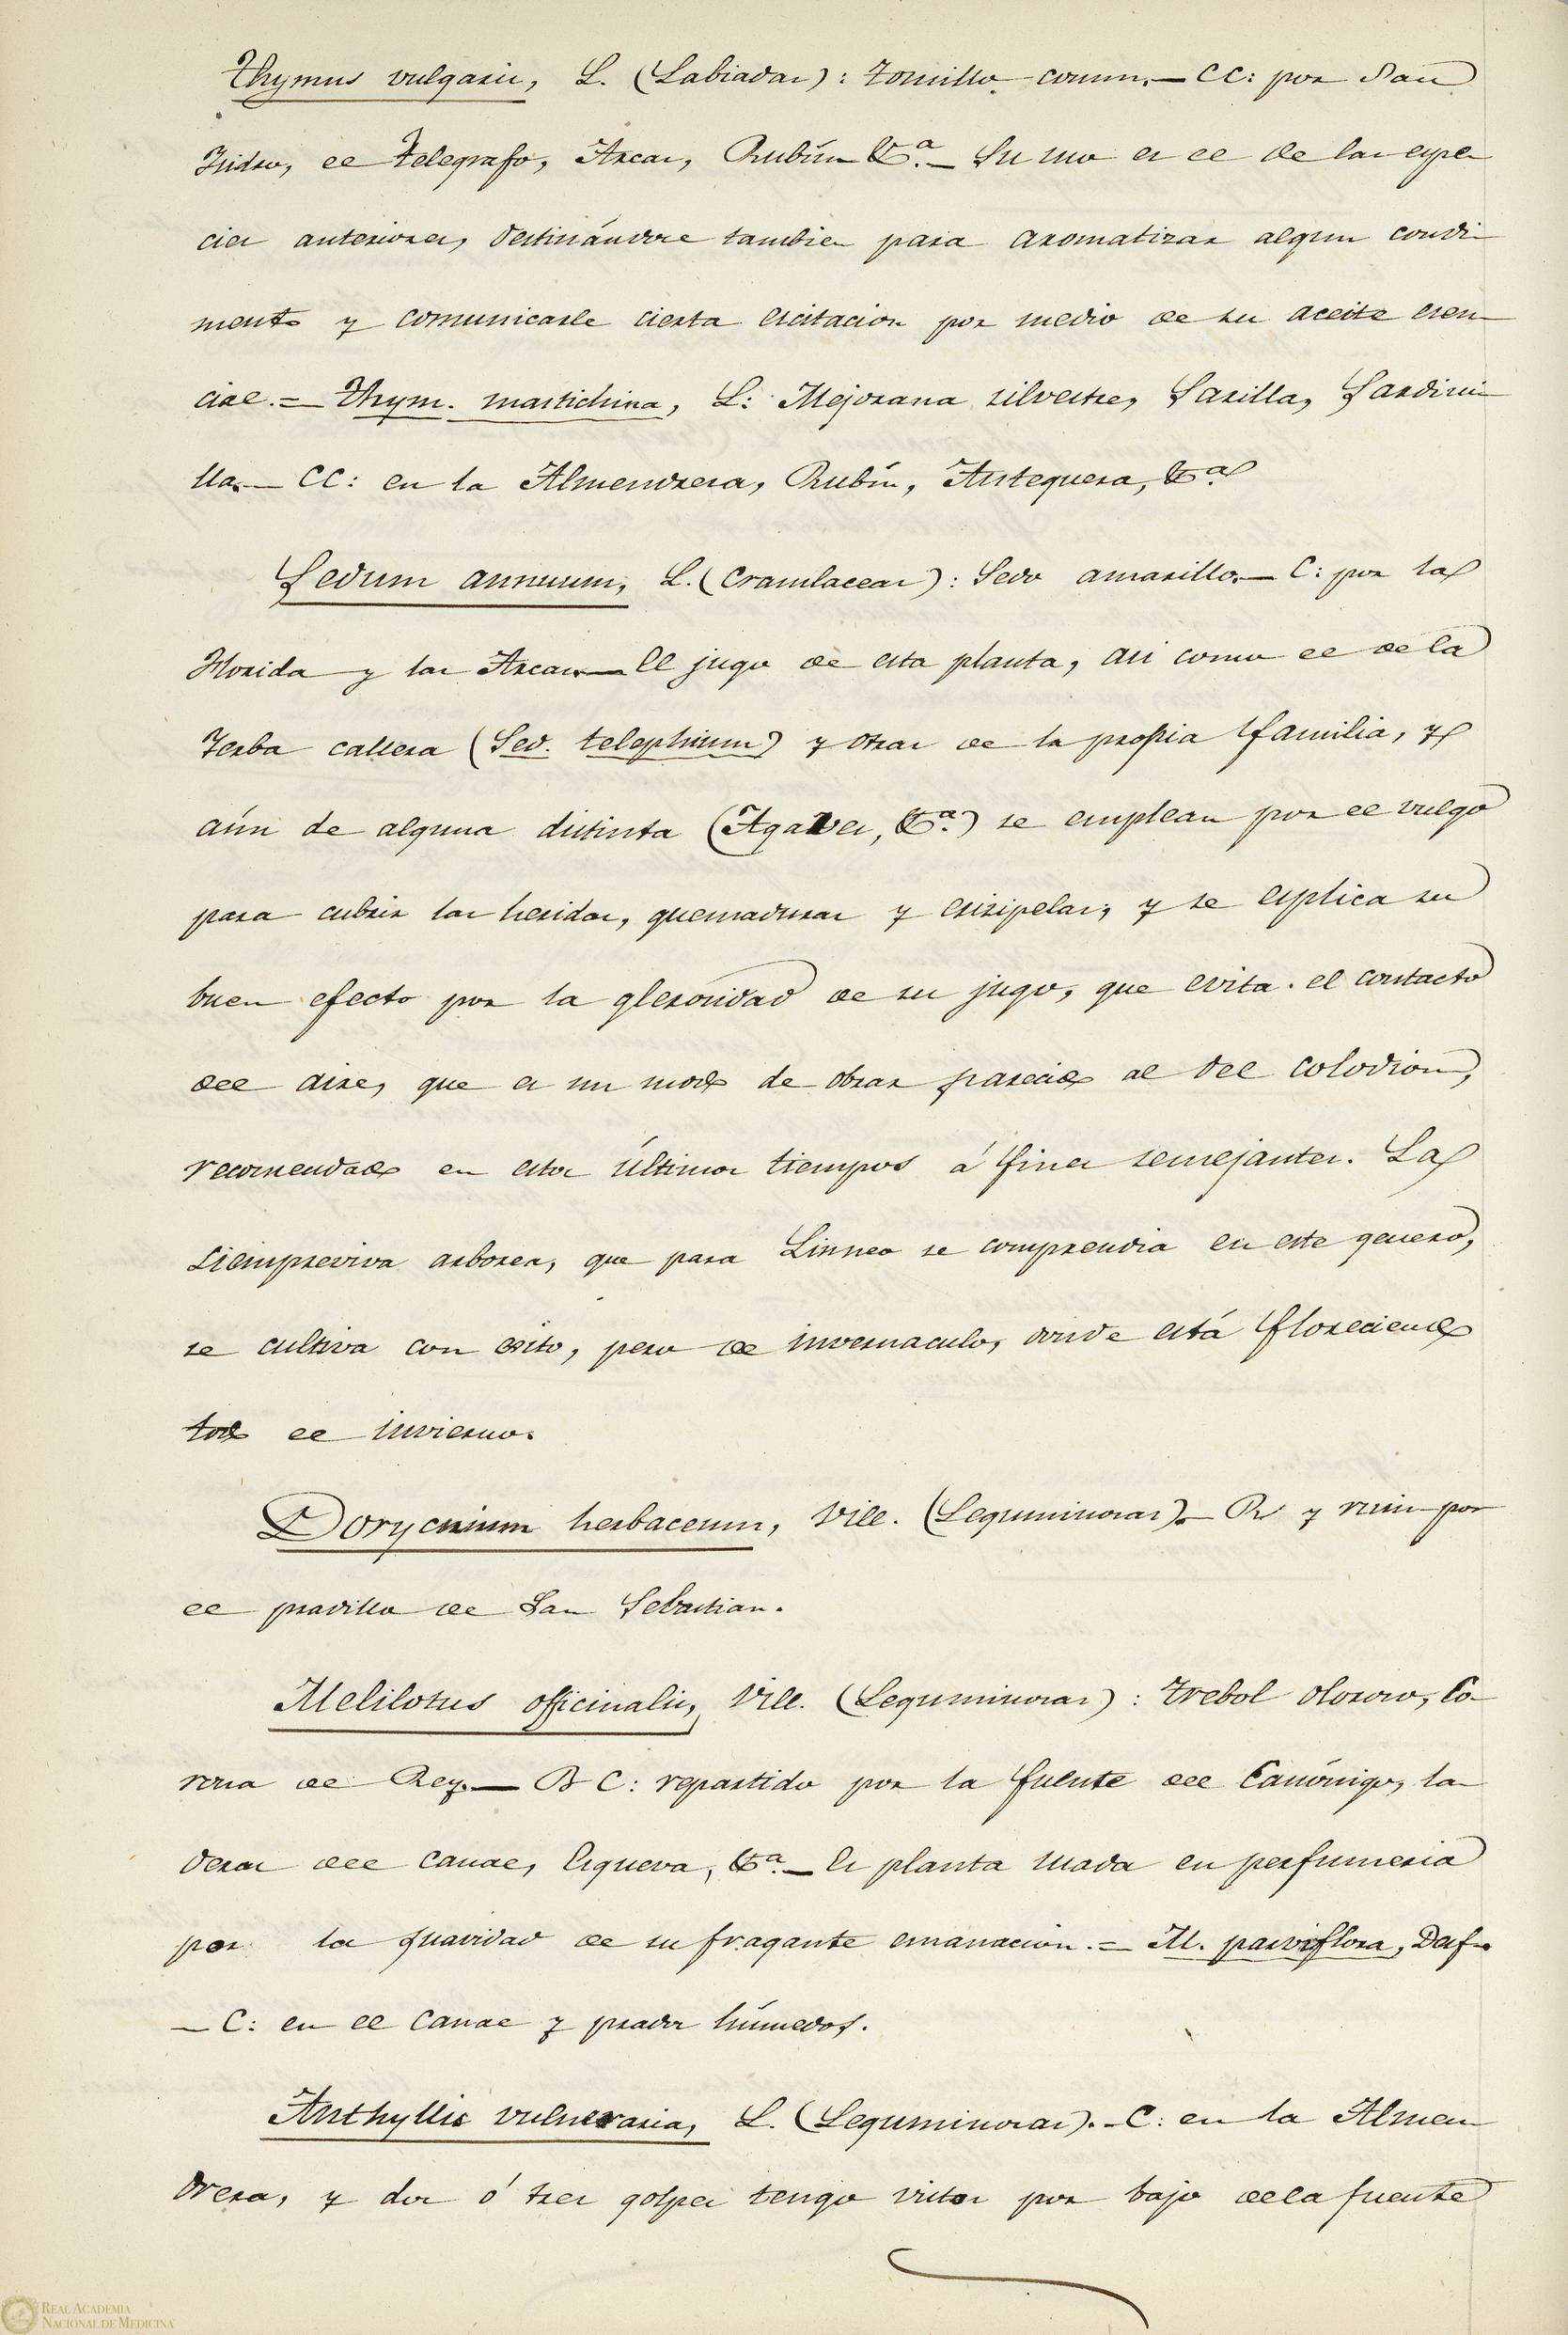 Thymus vulgaris, L. (Labiadas): Tomillo comun.— CC: por San
Isidro, el Telegrafo, Arcas, Rubín &.ª— Su uso es el de las espe
cies anteriores, destinándose tambien para aromatizar algun condi
mento y comunicarle cierta escitacion por medio de su aceite esen
cial.= Thym. mastichina, L: Mejorana silvestre, Sarilla, Sardini
lla.— CC: en la Almendrera, Rubín, Antequera, &.ª
Sedum annuum, L. (Crasulaceas): Sedo amarillo.— C: por la
Florida y las Arcas.— El jugo de esta planta, asi como el de la
Yerba callera (Sed. telephium) y otras de la propia familia, y
aún de alguna distinta (Agaves, &.ª) se emplean por el vulgo
para cubrir las heridas, quemaduras y erisipelas, y se esplica su
buen efecto por la glerosidad de su jugo, que evita el contacto
del aire, que es un modo de obrar parecido al del colodion,
recomendado en estos últimos tiempos á fines semejantes. La
siempreviva arborea, que para Linneo se comprendia en este genero,
se cultiva con exito, pero de invernaculo, donde está floreciendo
todo el invierno.
Dorycnium herbaceum, Vill. (Leguminosas).— R y ruin por
el pradillo de San Sebastian.
Melilotus officinalis, Vill. (Leguminosas): Trebol oloroso, Co-
rona de Rey.— B C: repartido por la fuente del Canónigo, la-
deras del canal, Esgueva, &.ª— Es planta usada en perfumeria
por la suavidad de su fragante emanacion.= M. parviflora, Desf.
— C: en el canal y prados húmedos.
Anthyllis vulneraria, L. (Leguminosas).—C: en la Almen
drera, y dos ó tres golpes tengo vistos por bajo de la fuente
REAL ACADEMIA
NACIONAL DE MEDICINA